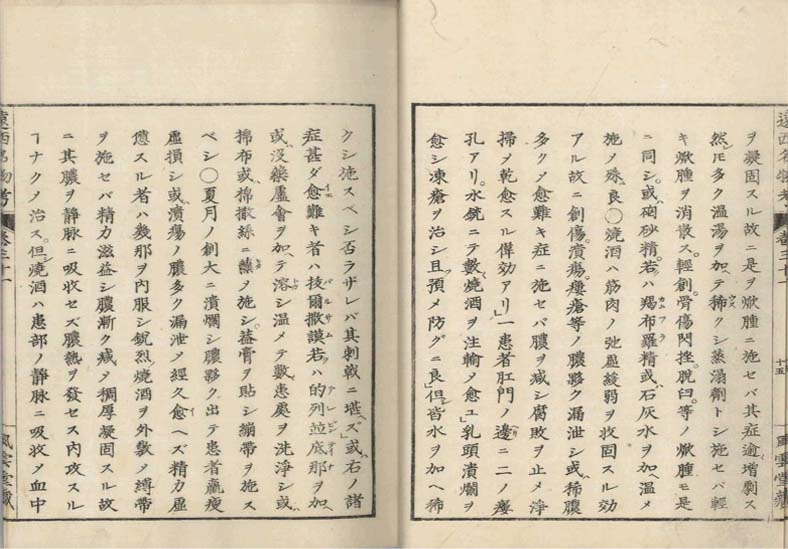 遠西名物考
卷三十一
十五
風雲堂藏
ヲ凝固スル故ニ是ヲ焮腫ニ施セバ其症逾増劇ス
然𪜈多ク温湯ヲ加テ稀クシ蒸溻劑トシ施セバ輕
キ焮腫ヲ消散ス。輕創。骨傷。閃挫。脱臼。等ノ焮腫モ是
ニ同シ。或硇砂精。若ハ羯布羅精或石灰水ヲ加温メ
施メ殊良〇燒酒ハ筋肉ノ弛縱緩弱ヲ收固スル効
アル故ニ創傷。潰瘍。瘻瘡等ノ膿夥ク漏泄シ或稀膿
多クメ愈難キ症ニ施セバ膿ヲ减シ腐敗ヲ止メ淨
掃メ乾愈スル偉効アリ」一患者肛門ノ邊ニ二ノ瘻
孔アリ。水銃ニテ數燒酒ヲ注輸メ愈ユ」乳頭潰爛ヲ
愈シ凍瘡ヲ治シ且預メ防グニ良但皆水ヲ加ヘ稀
クシ施スベシ否ラザレバ其刺戟ニ堪ズ」或右ノ諸
症甚ダ愈難キ者ハ抜爾撒謨若ハ的列並底那ヲ加
或没藥蘆薈ヲ加テ溶シ温メテ數患處ヲ洗淨シ或
棉布或棉撒絲ニ蘸メ施シ。葢膏ヲ貼シ綳帶ヲ施ス
ベシ〇夏月ノ創大ニ潰爛シ膿夥ク出テ患者羸痩
虚損シ或潰瘍ノ膿多ク漏泄メ經久愈ヘズ精力虚
憊スル者ハ幾那ヲ内服シ鋭烈燒酒ヲ外敷メ縛帶
ヲ施セバ精力滋益シ膿漸ク减メ稠厚凝固スル故
ニ其膿ヲ静脉ニ吸收セズ膿熱ヲ發セス内攻スル
ヿナクメ治ス。但燒酒ハ患部ノ静脉ニ吸收メ血中
遠西名物考
卷三十一
風雲堂藏